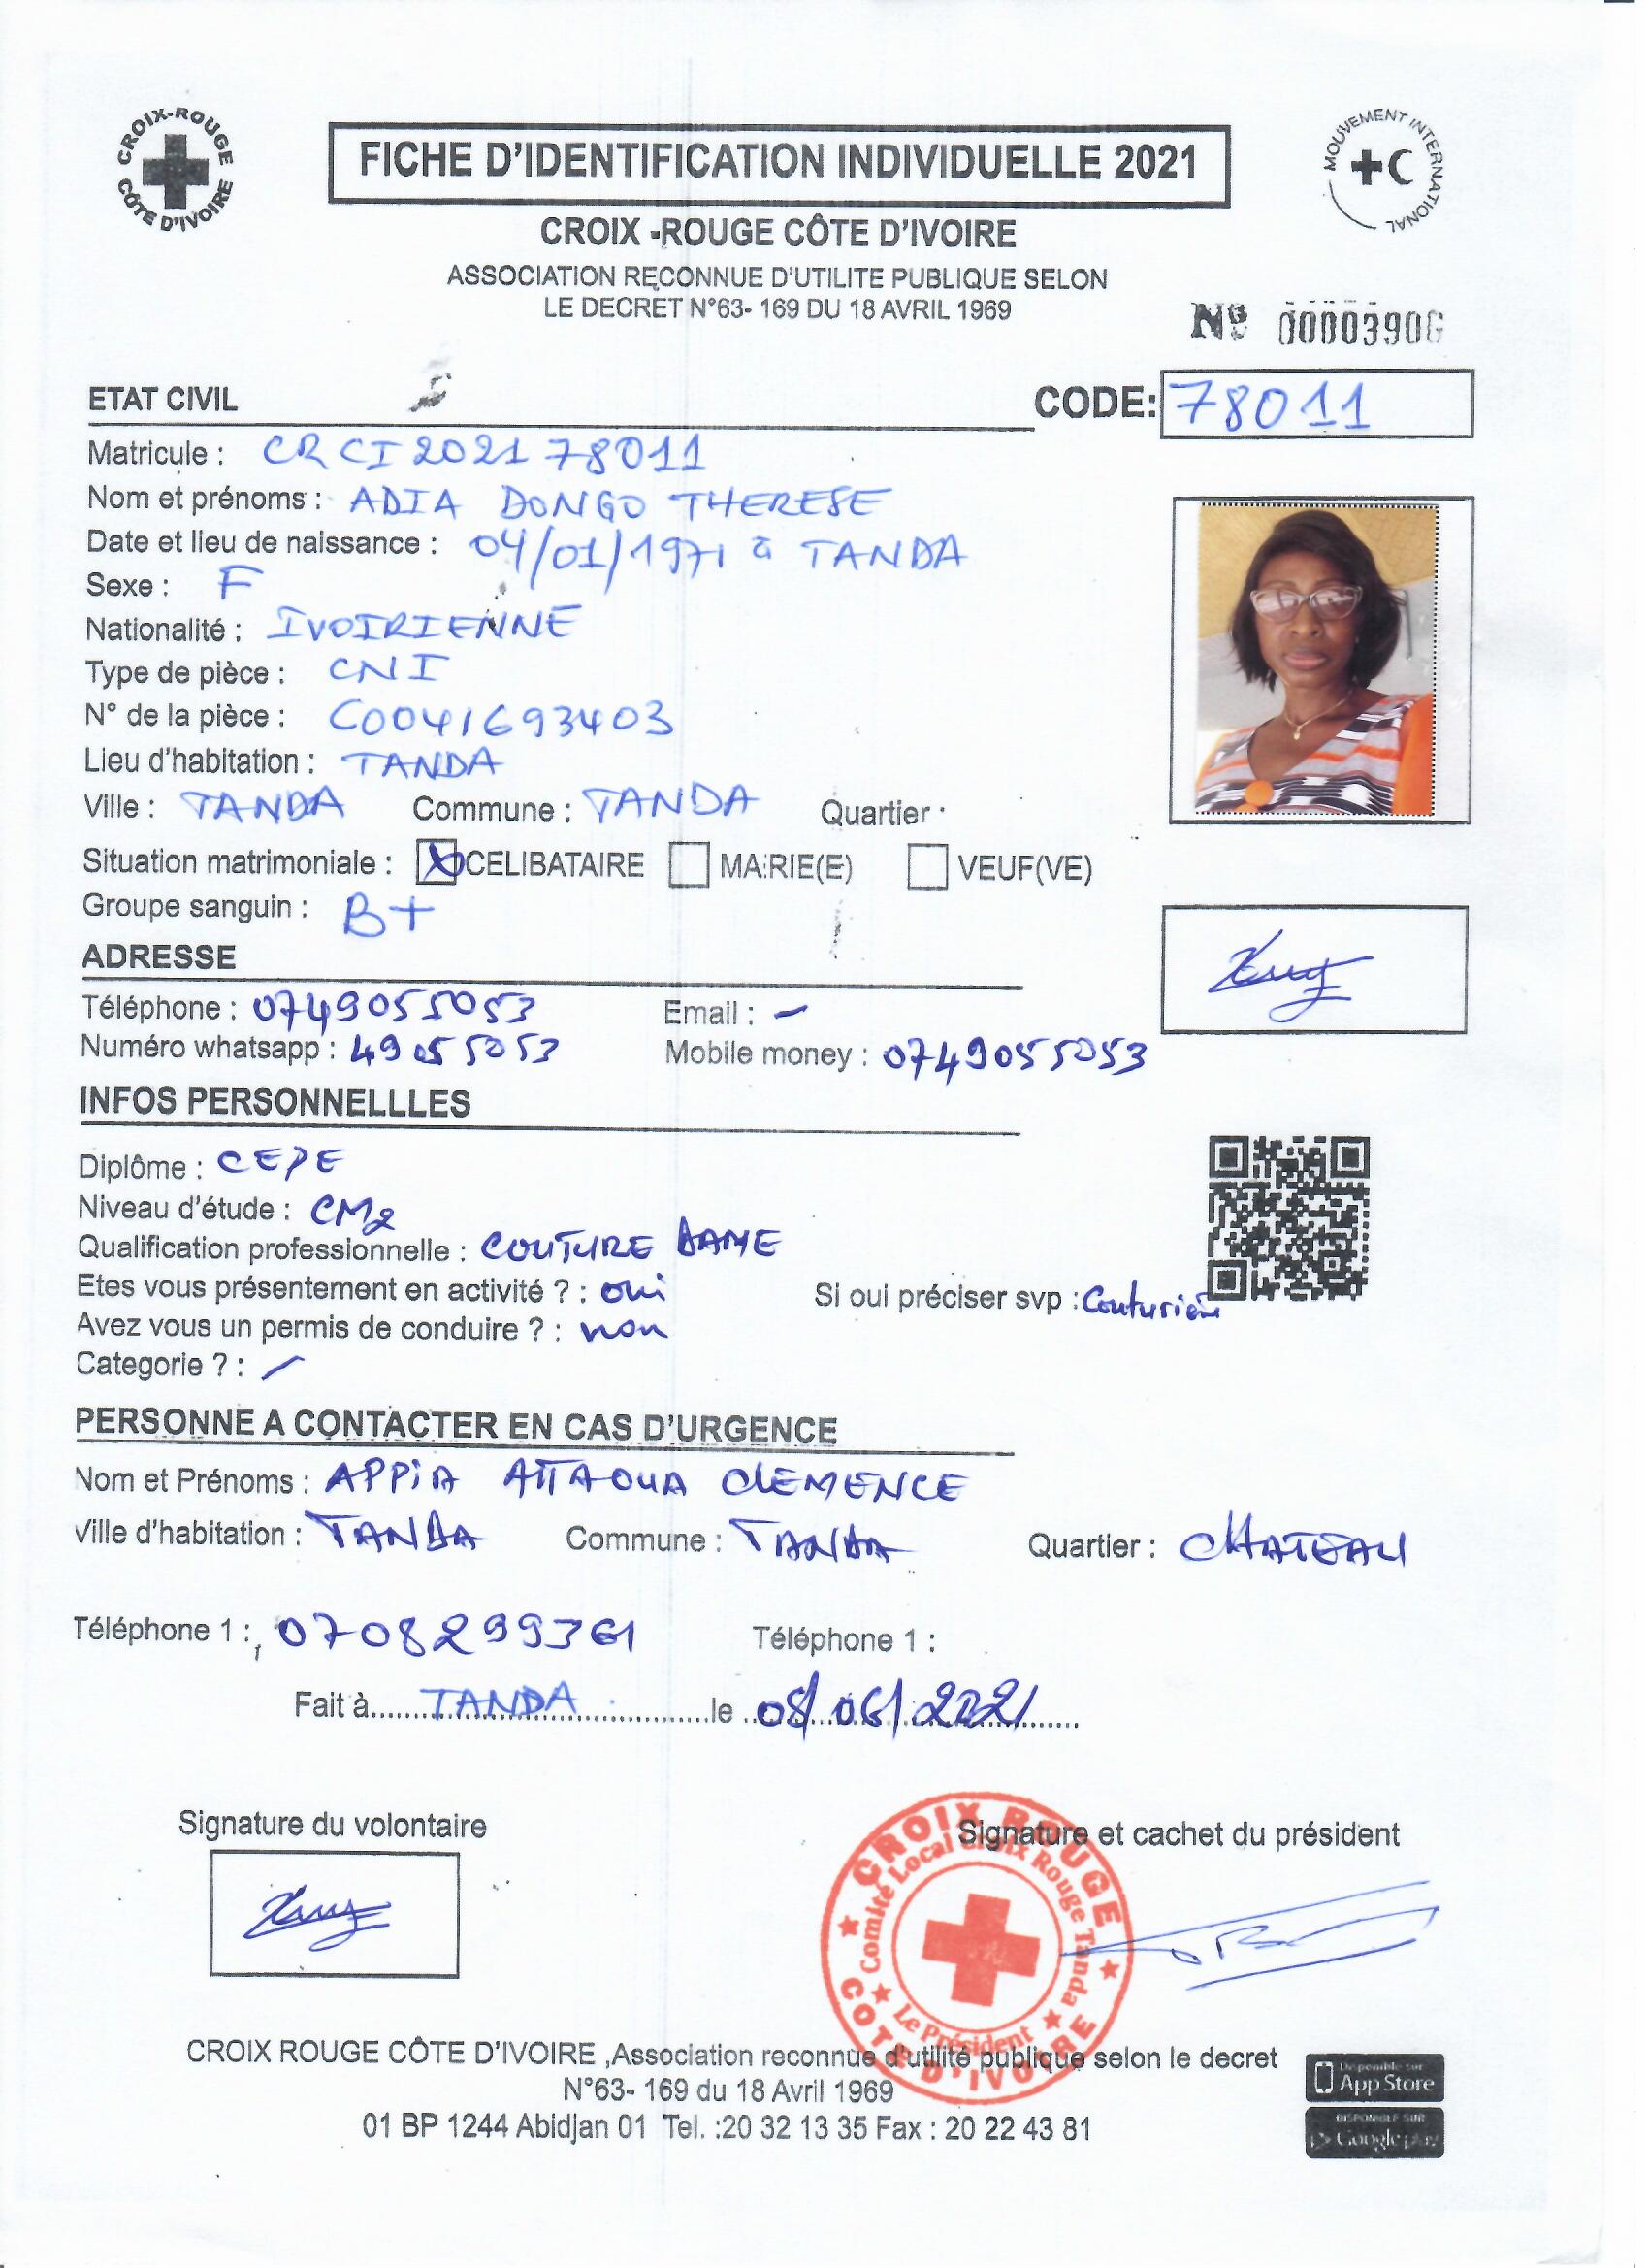 CROIX-ROUGE CÔTE D'IVOIRE
FICHE D'IDENTIFICATION INDIVIDUELLE 2021
MOUVEMENT INTERNATIONAL
CROIX -ROUGE CÔTE D'IVOIRE
ASSOCIATION RECONNUE D'UTILITE PUBLIQUE SELON
LE DECRET N°63- 169 DU 18 AVRIL 1969
Nº 0000390
ETAT CIVIL
CODE: 78011
Matricule : CRCI2021 78011
Nom et prénoms : ADIA DONGO THERESE
Date et lieu de naissance : 04/01/1971 à TANDA
Sexe : F
Nationalité : IVOIRIENNE
Type de pièce : CNI
N° de la pièce : C0041693403
Lieu d'habitation : TANDA
Ville : TANDA Commune : TANDA Quartier
Situation matrimoniale : CELIBATAIRE MARIE(E) VEUF(VE)
Groupe sanguin : B+
ADRESSE
Téléphone : 0749055053 Email : –
Numéro whatsapp : 49055053 Mobile money : 0749055053
INFOS PERSONNELLLES
Diplôme : CEPE
Niveau d'étude : CM2
Qualification professionnelle : COUTURE DAME
Etes vous présentement en activité ? : oui Si oui préciser svp : Couturière
Avez vous un permis de conduire ? : non
Categorie ? : –
PERSONNE A CONTACTER EN CAS D'URGENCE
Nom et Prénoms : APPIA ATTAOUA CLEMENCE
Ville d'habitation : TANDA Commune : TANDA Quartier : CHATEAU
Téléphone 1 : 0708299361 Téléphone 1 :
Fait à TANDA le 08/06/2021
Signature du volontaire
Signature et cachet du président
CROIX ROUGE
Comité Local Croix Rouge Tanda
Le Président
COTE D'IVOIRE
CROIX ROUGE CÔTE D'IVOIRE ,Association reconnue d'utilité publique selon le decret
N°63- 169 du 18 Avril 1969
01 BP 1244 Abidjan 01 Tel. :20 32 13 35 Fax : 20 22 43 81
Disponible sur
App Store
DISPONIBLE SUR
Google play